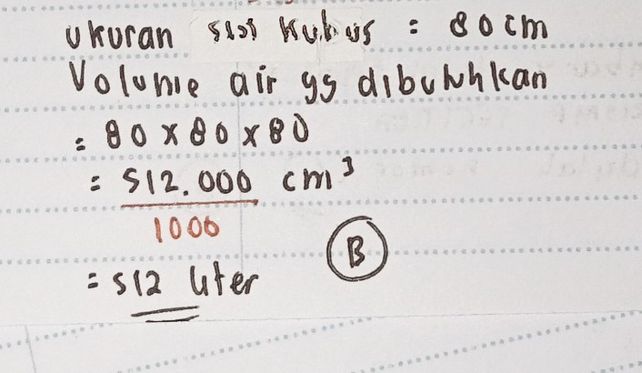 ukuran sisi kubus = 80 cm
Volume air yg dibutuhkan
= 80 x 80 x 80
= 512.000 cm³
1000
= 512 liter
B